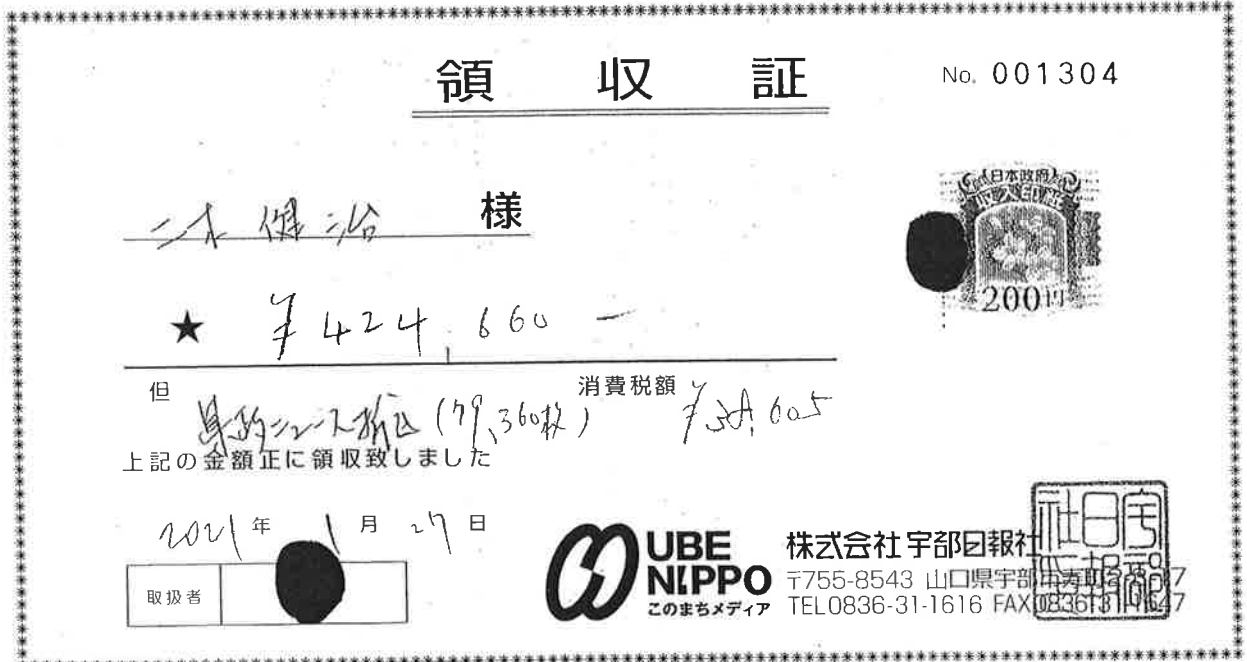 領収証
No. 001304
二木健治 様
日本政府
収入印紙
200円
★ ¥424,660-
但 県政ニュース折込 (79,360枚) 消費税額 ¥38,605
上記の金額正に領収致しました
2021年 1月 27日
取扱者
UBE NIPPO
このまちメディア
株式会社 宇部日報社
〒755-8543 山口県宇部市寿町
TEL0836-31-1616 FAX0836-31-1647